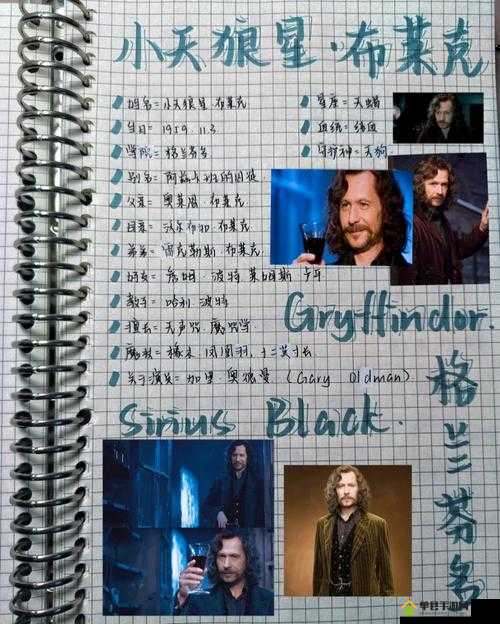 小天狼星·布莱克
姓名=小天狼星·布莱克
星座=天蝎
生日=1959.11.3
血统=纯血
学院=格兰芬多
守护神=天狗
别名=阿兹卡班的囚徒
父亲=奥莱恩·布莱克
母亲=沃尔布加·布莱克
弟弟=雷古勒斯·布莱克
好友=詹姆·波特 莱姆斯 卢平
教子=哈利·波特
擅长=无声咒 魔咒学
魔杖=橡木,凤凰羽,十二英寸长
关于演员=加里·奥德曼(Gary Oldman)
Gryffindor.
格兰芬多
Sirius Black.